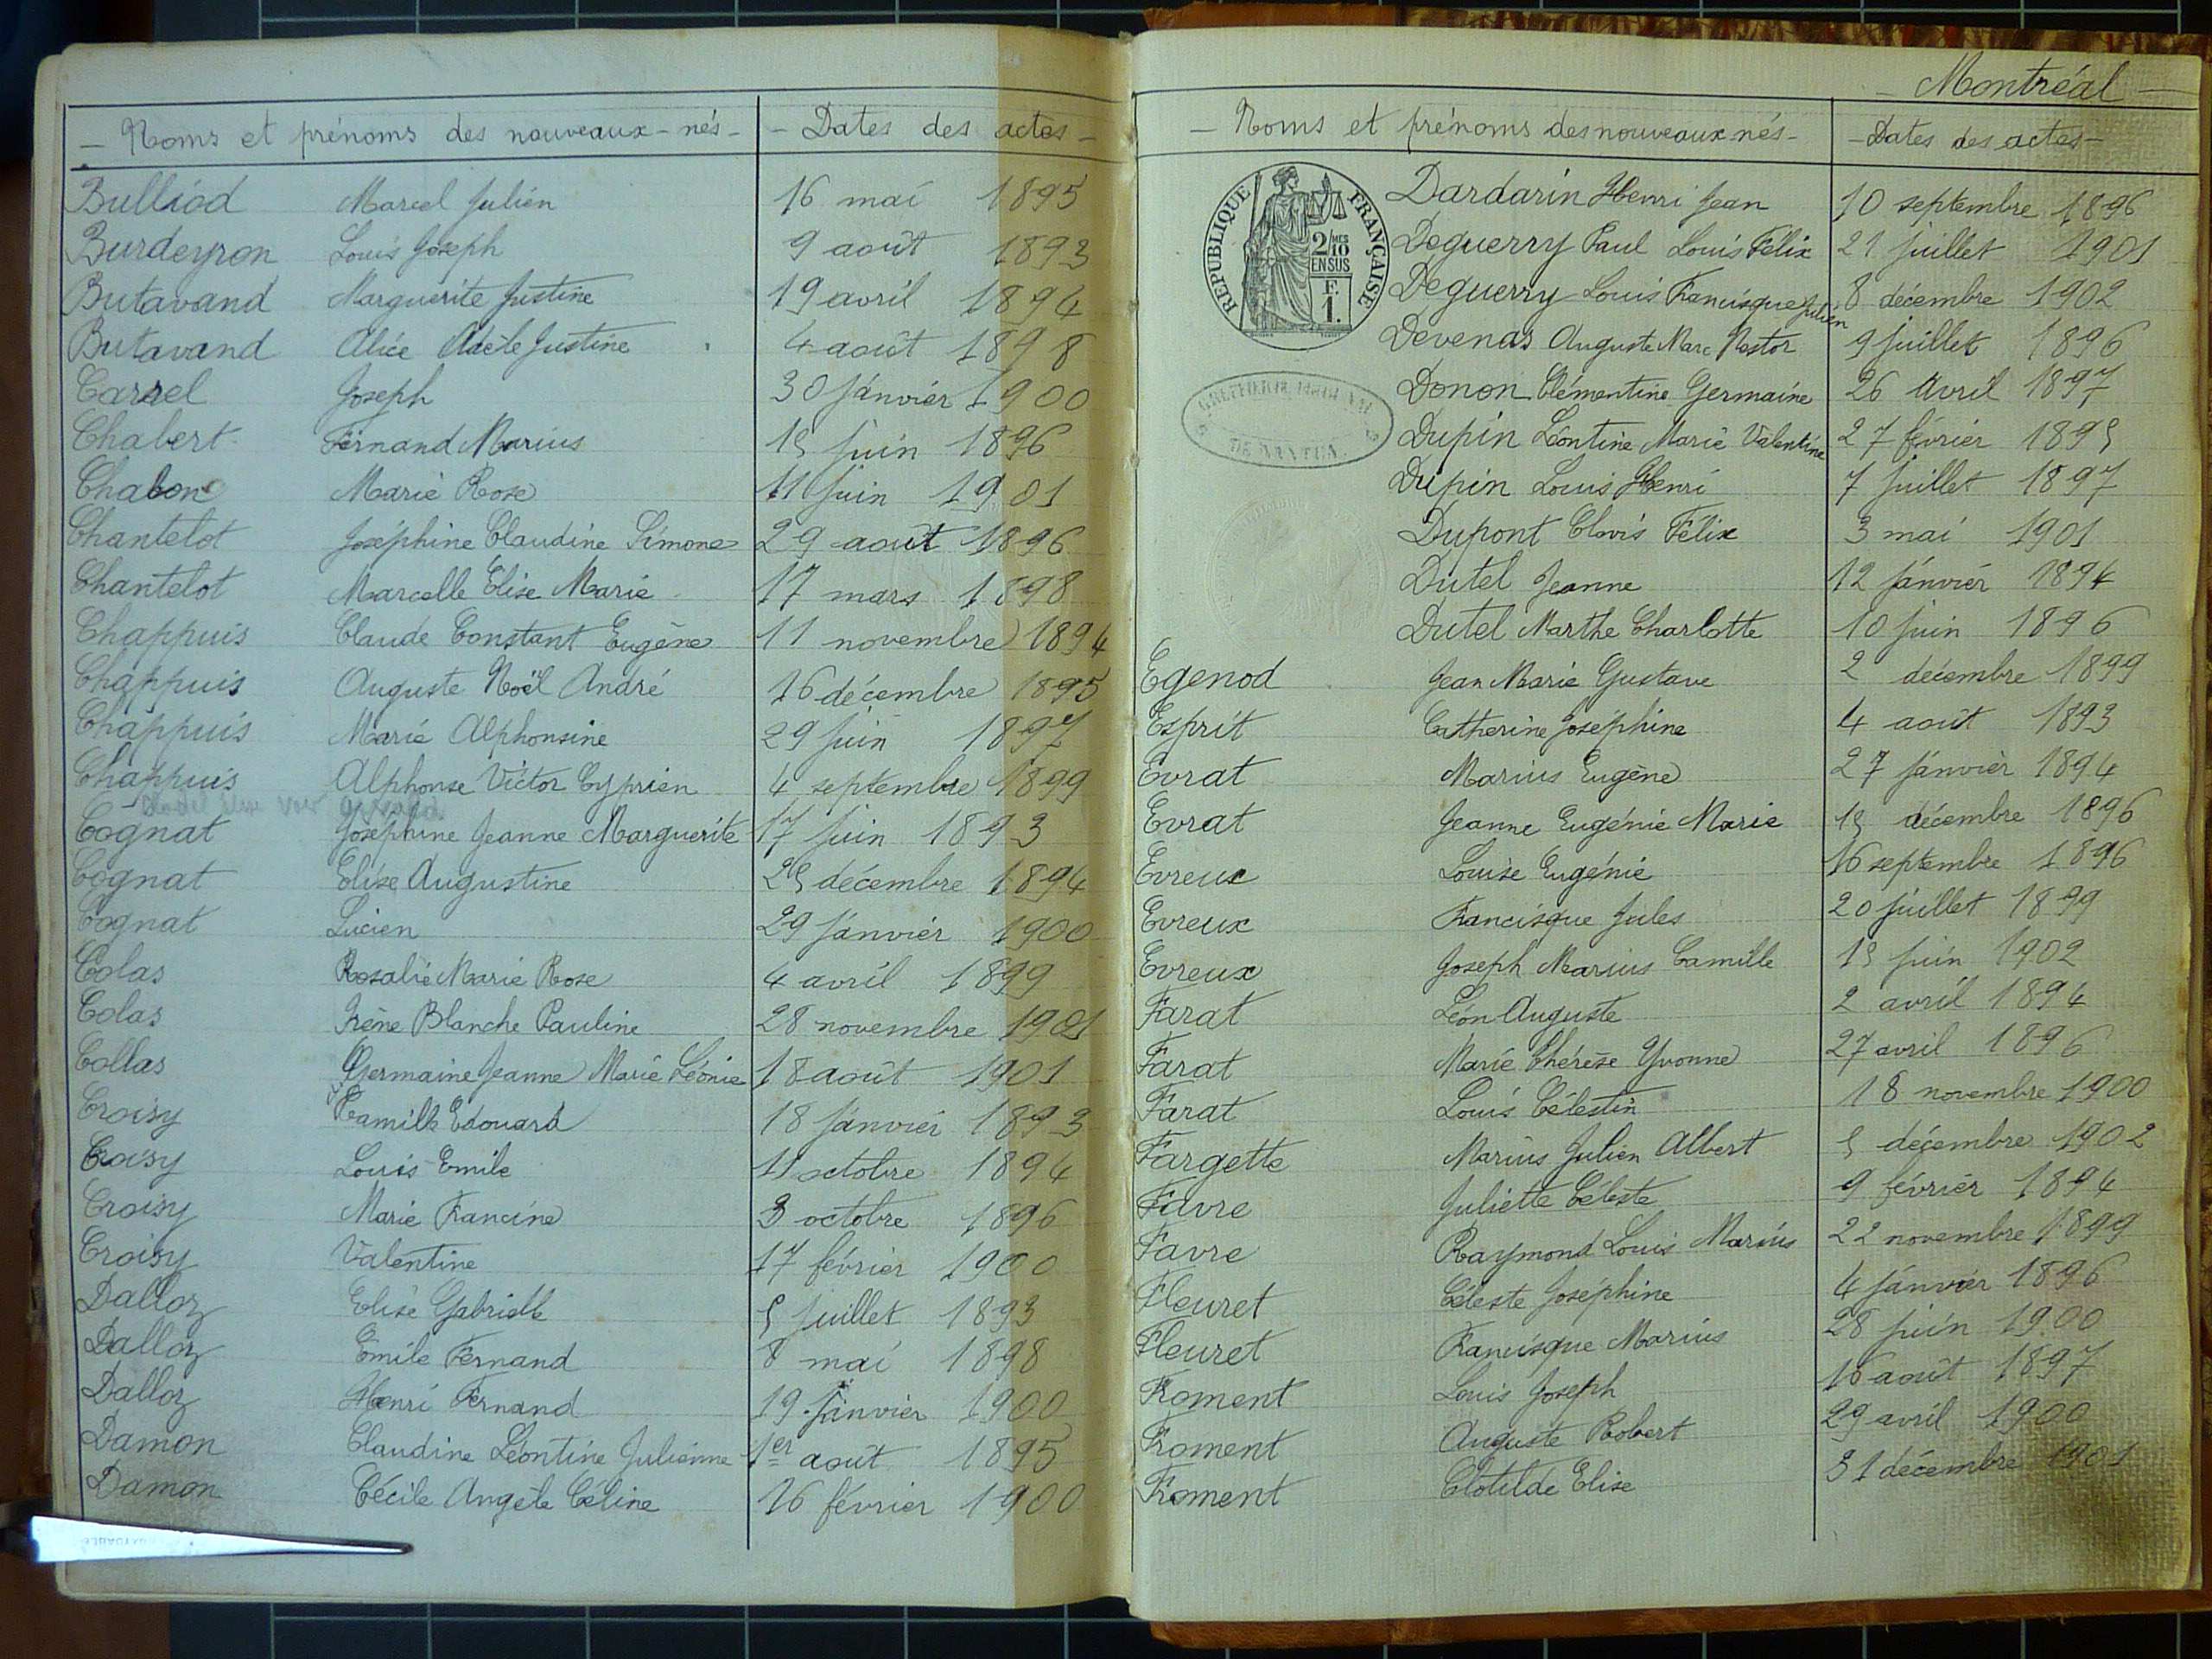 — Noms et prénoms des nouveaux-nés — — Dates des actes —
Bulliod Marcel Julien 16 mai 1895
Burdeyron Louis Joseph 9 août 1893
Butavand Marguerite Justine 19 avril 1894
Butavand Alice Adèle Justine 4 août 1898
Carrel Joseph 30 janvier 1900
Chabert Fernand Marius 15 juin 1896
Chabon Marie Rose 11 juin 1901
Chantelot Joséphine Claudine Simone 29 août 1896
Chantelot Marcelle Elise Marie 17 mars 1898
Chappuis Claude Constant Eugène 11 novembre 1894
Chappuis Auguste Noël André 16 décembre 1895
Chappuis Marie Alphonsine 29 juin 1897
Chappuis Alphonse Victor Cyprien 4 septembre 1899
voir
Cognat Joséphine Jeanne Marguerite 17 juin 1893
Cognat Elise Augustine 25 décembre 1894
Cognat Lucien 29 janvier 1900
Colas Rosalie Marie Rose 4 avril 1899
Colas Irène Blanche Pauline 28 novembre 1901
Collas Germaine Jeanne Marie Léonie 18 août 1901
Croisy Camille Edouard 18 janvier 1893
Croisy Louis Emile 11 octobre 1894
Croisy Marie Francine 3 octobre 1896
Croisy Valentine 17 février 1900
Dalloz Elise Gabrielle 5 juillet 1893
Dalloz Emile Fernand 8 mai 1898
Dalloz Henri Fernand 19 janvier 1900
Damon Claudine Léontine Julienne 1er août 1895
Damon Cécile Angèle Céline 16 février 1900
— Montréal —
— Noms et prénoms des nouveaux nés — — Dates des actes —
RÉPUBLIQUE FRANÇAISE
2/MES 10
EN SUS
F.
1.
DE NANTUA
Dardarin Henri Jean 10 septembre 1896
Deguerry Paul Louis Félix 21 juillet 1901
Deguerry Louis Francisque Julien 8 décembre 1902
Devenas Auguste Marc Nestor 9 juillet 1896
Donon Clémentine Germaine 26 avril 1897
Dupin Léontine Marie Valentine 27 février 1895
Dupin Louis Henri 7 juillet 1897
Dupont Clovis Félix 3 mai 1901
Dutel Jeanne 12 janvier 1894
Dutel Marthe Charlotte 10 juin 1896
Egenod Jean Marie Gustave 2 décembre 1899
Esprit Catherine Joséphine 4 août 1893
Evrat Marius Eugène 27 janvier 1894
Evrat Jeanne Eugénie Marie 15 décembre 1896
Evreux Louise Eugénie 16 septembre 1896
Evreux Francisque Jules 20 juillet 1899
Evreux Joseph Marius Camille 15 juin 1902
Farat Léon Auguste 2 avril 1894
Farat Marie Thérèse Yvonne 27 avril 1896
Farat Louis Célestin 18 novembre 1900
Fargette Marius Julien Albert 5 décembre 1902
Favre Juliette Céleste 9 février 1894
Favre Raymond Louis Marius 22 novembre 1899
Fleuret Céleste Joséphine 4 janvier 1896
Fleuret Francisque Marius 28 juin 1900
Froment Louis Joseph 16 août 1897
Froment Auguste Robert 29 avril 1900
Froment Clotilde Elise 31 décembre 1901